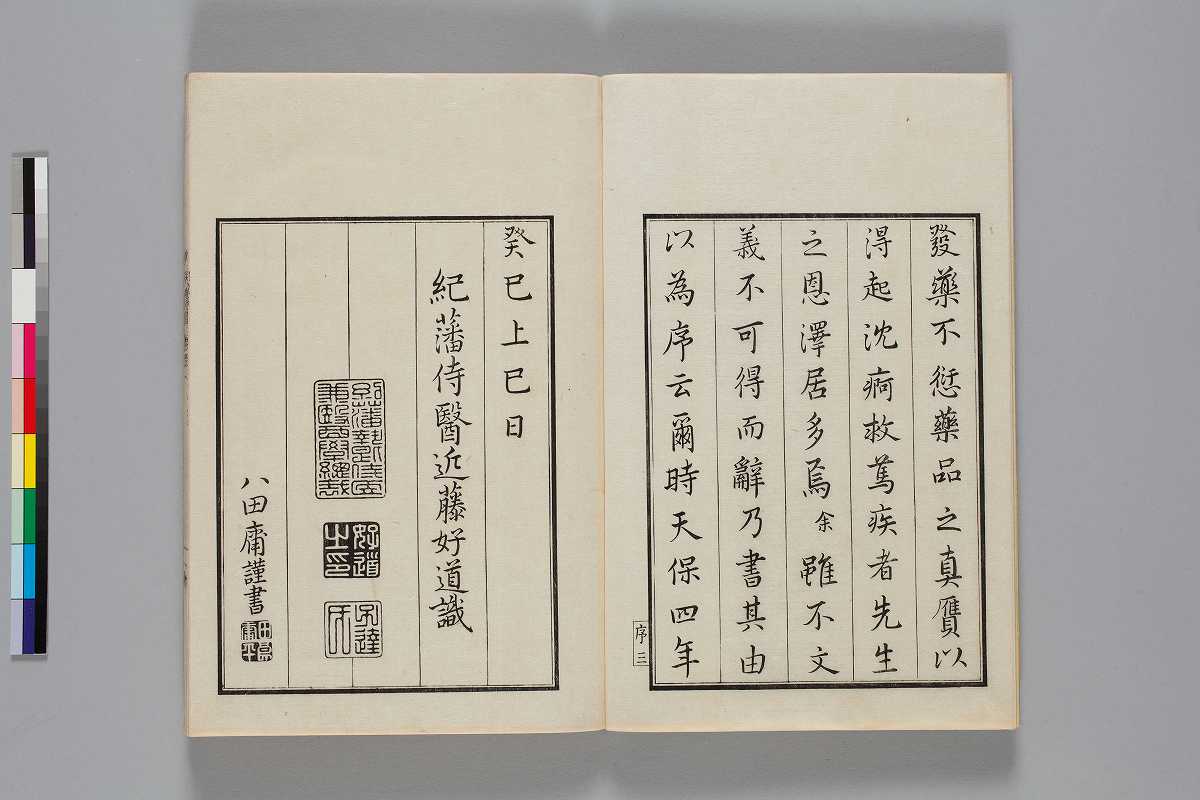 發藥不愆藥品之真贋以
得起沈痾救篤疾者先生
之恩澤居多焉余雖不文
義不可得而辭乃書其由
以為序云爾時天保四年
序三
癸巳上巳日
紀藩侍醫近藤好道識
好道之印
八田庸謹書